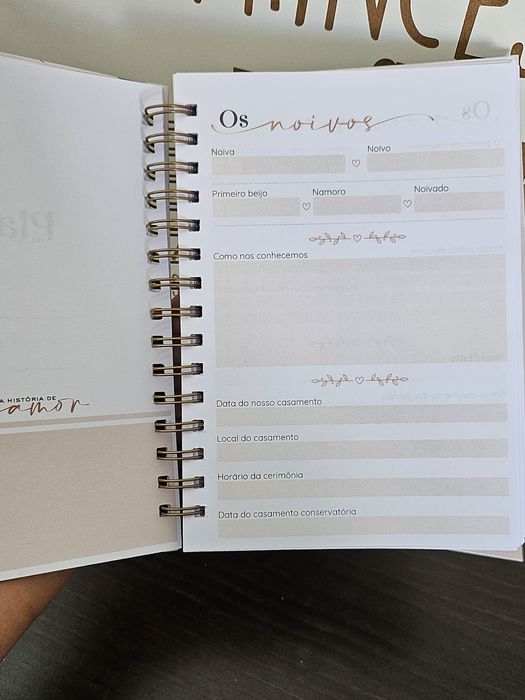 Os noivos
Noiva Noivo
Primeiro beijo Namoro Noivado
Como nos conhecemos
Data do nosso casamento
Local do casamento
Horário da cerimônia
Data do casamento conservatória
A HISTÓRIA DE
amor